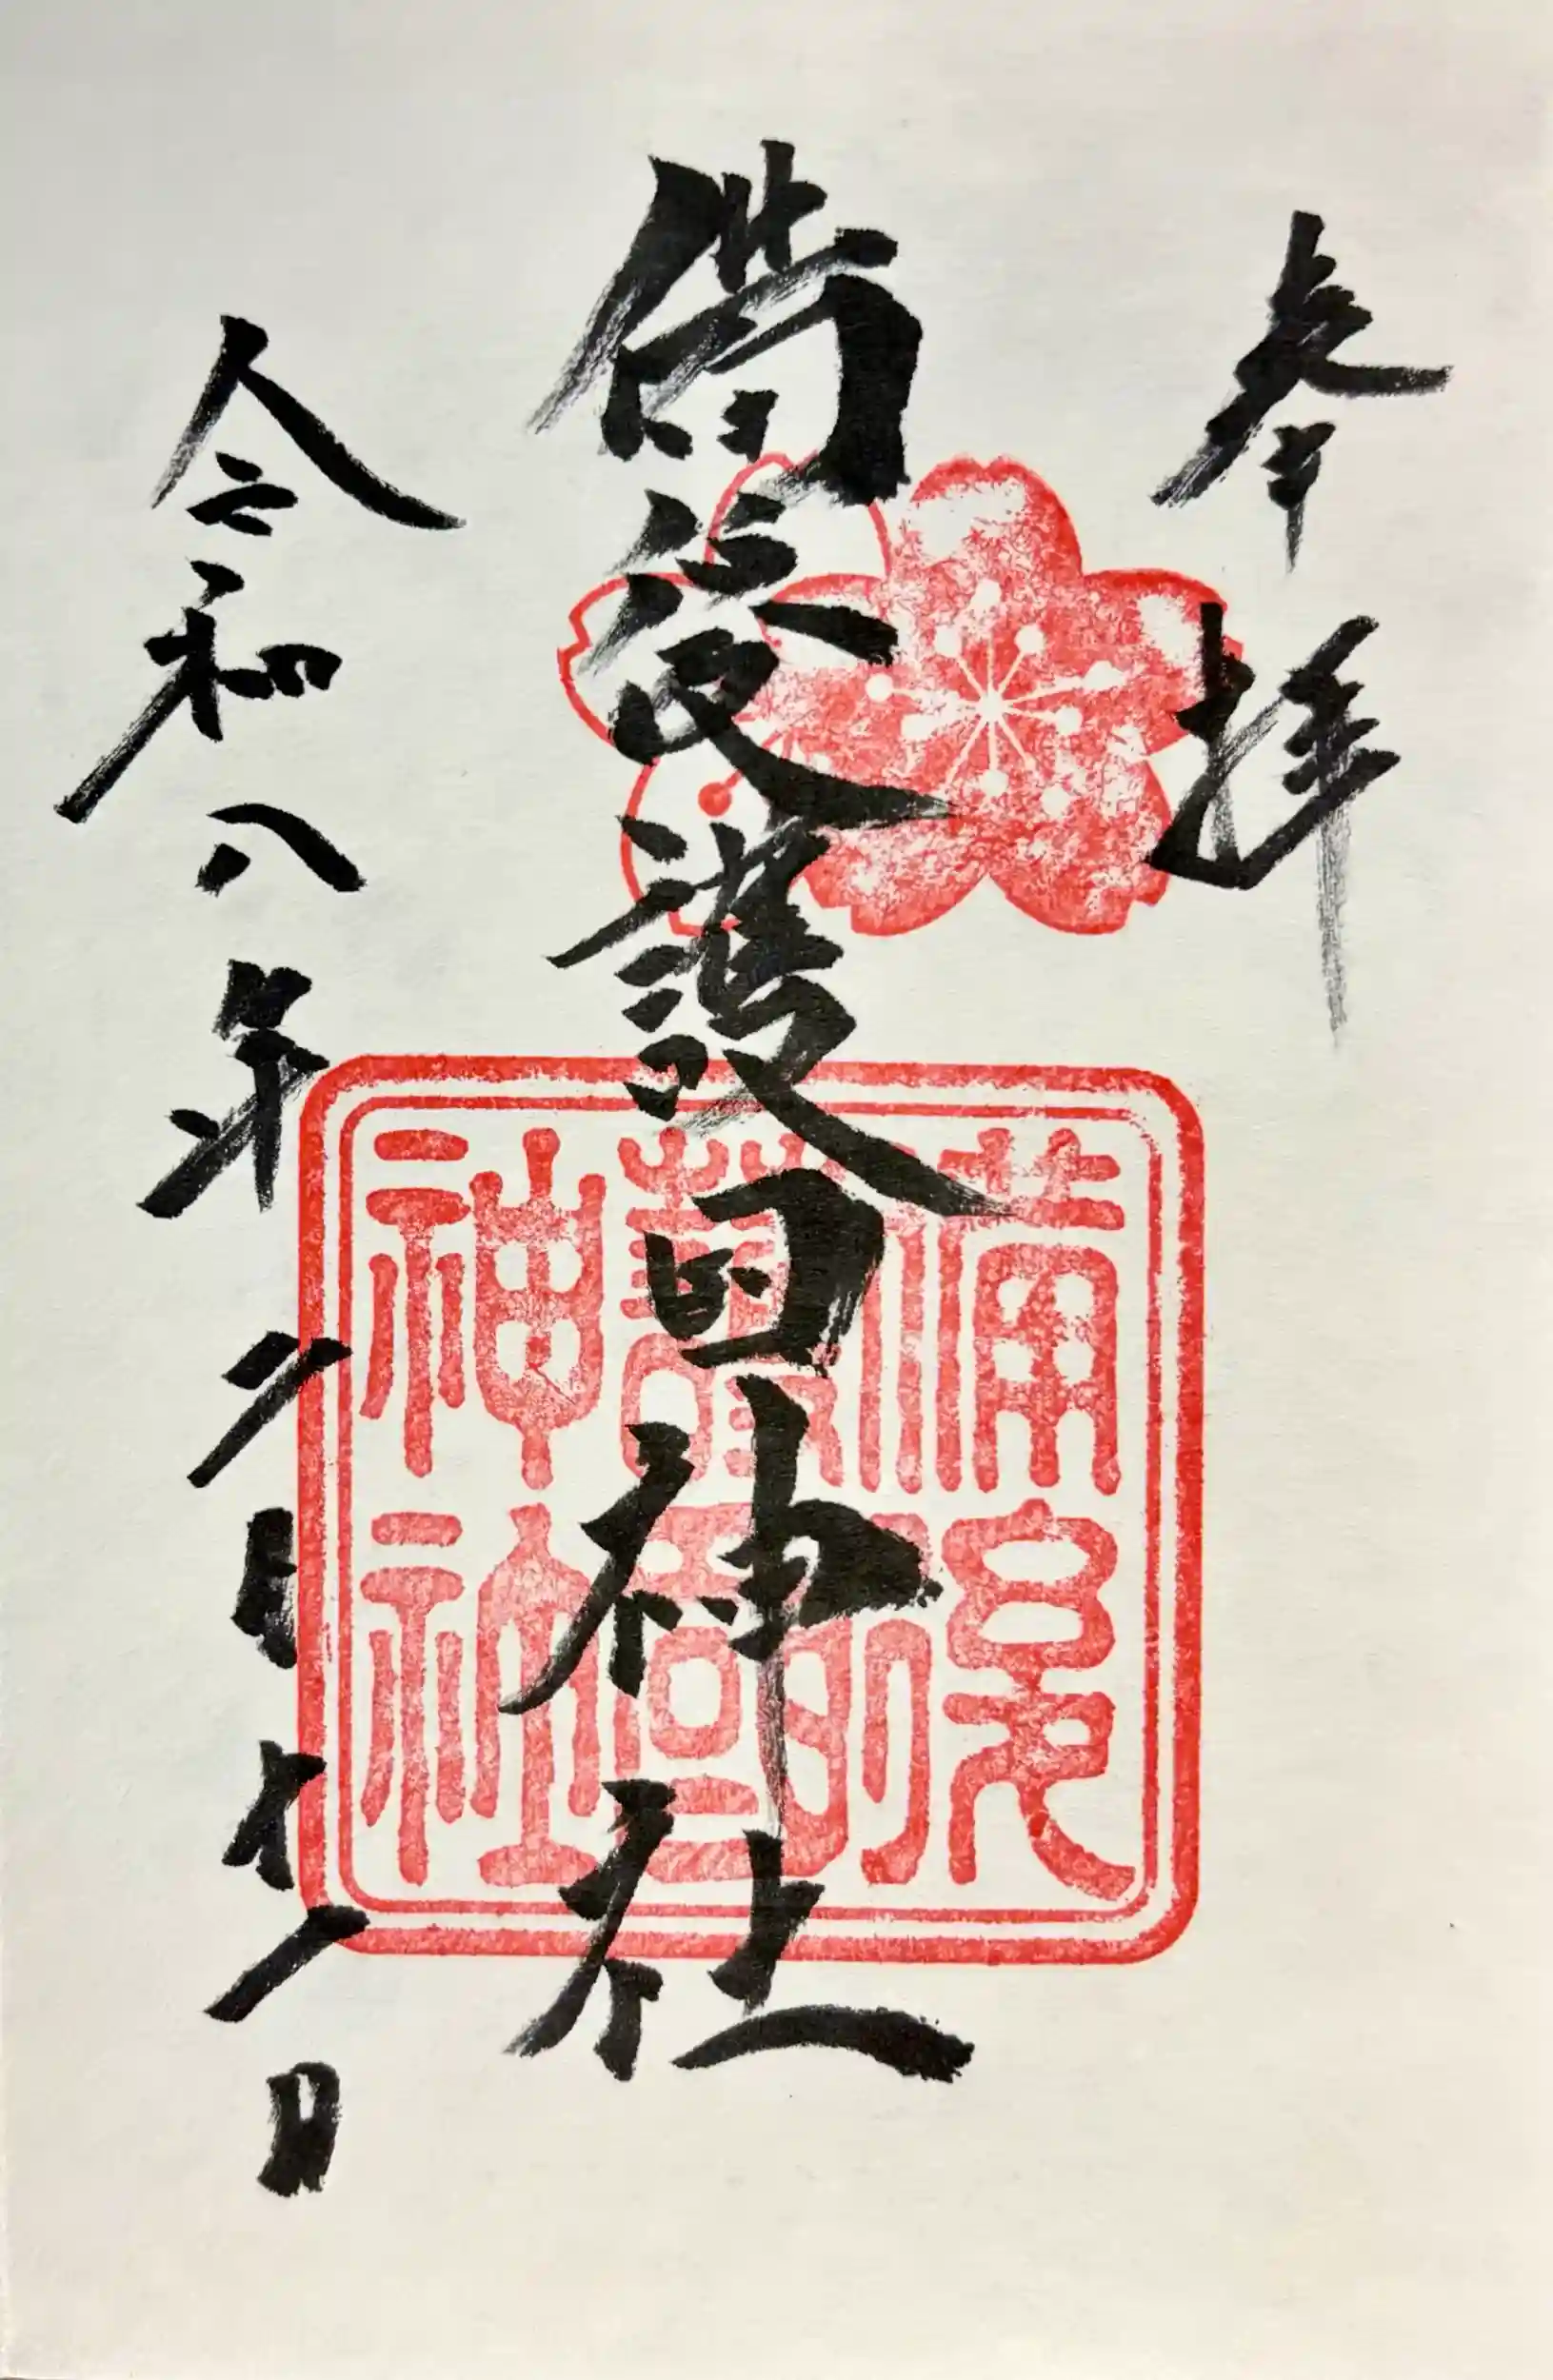 奉拝
備後護国神社
令和八年二月十一日
備後
護國
神社